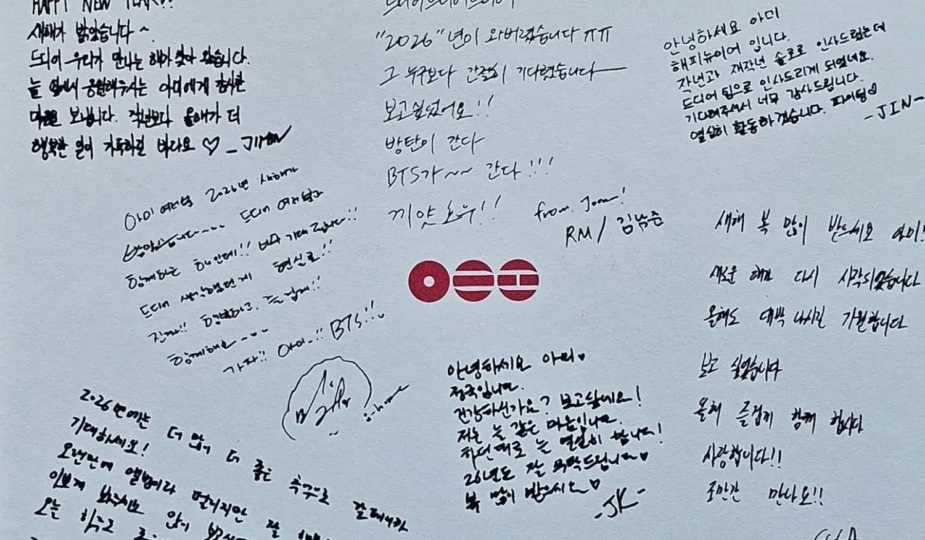 HAPPY NEW YEAR!!
새해가 밝았습니다~
드디어 우리가 만나는 해가 찾아 왔습니다.
늘 옆에서 응원해주시는 아미에게 감사한
마음을 보냅니다. 작년보다 올해가 더
행복한 일이 가득하길 바라요 ♡ _JIMIN
"2026"년이 와버렸습니다 ㅠㅠ
그 누구보다 간절히 기다렸습니다
보고싶었어요!!
방탄이 간다
BTS가~~ 간다!!!
끼얏호우!!
from. Joon!
RM / 김남준
안녕하세요 아미
해피뉴이어 입니다.
작년과 재작년 솔로로 인사드렸는데
드디어 팀으로 인사드리게 되었네요.
기다려주셔서 너무 감사드립니다.
열심히 활동하겠습니다 파이팅♡
-JIN-
아미 여러분 2026년 새해가
밝았습니다~~~ 드디어 여러분과
함께하는 한해!! 너무 기대됩니다!!
드디어 생각했던게 현실로!!
진짜!! 행복하고 즐겁게!!
함께해요~~~
가자!! 아미~!! BTS!!
j-hope
새해 복 많이 받으세요 아미!
새로운 해가 다시 시작되었습니다
올해도 대박 나시길 기원합니다
보고 싶었습니다
올해 즐겁게 함께 합시다
사랑합니다!!
조만간 만나요!!
안녕하세요 아미♡
정국입니다.
건강하신가요? 보고싶네요!
저는 늘 같은 마음입니다.
저도 늘 열심히 합니다!
26년도 잘 부탁드립니다♡
복 많이 받으세요♡
-JK-
2026년에는 더 많이 더 좋은 추억으로
기대하세요!
오랜만에 앨범이라 떨리지만 잘
이쁘게 봐주시고 많이
오늘